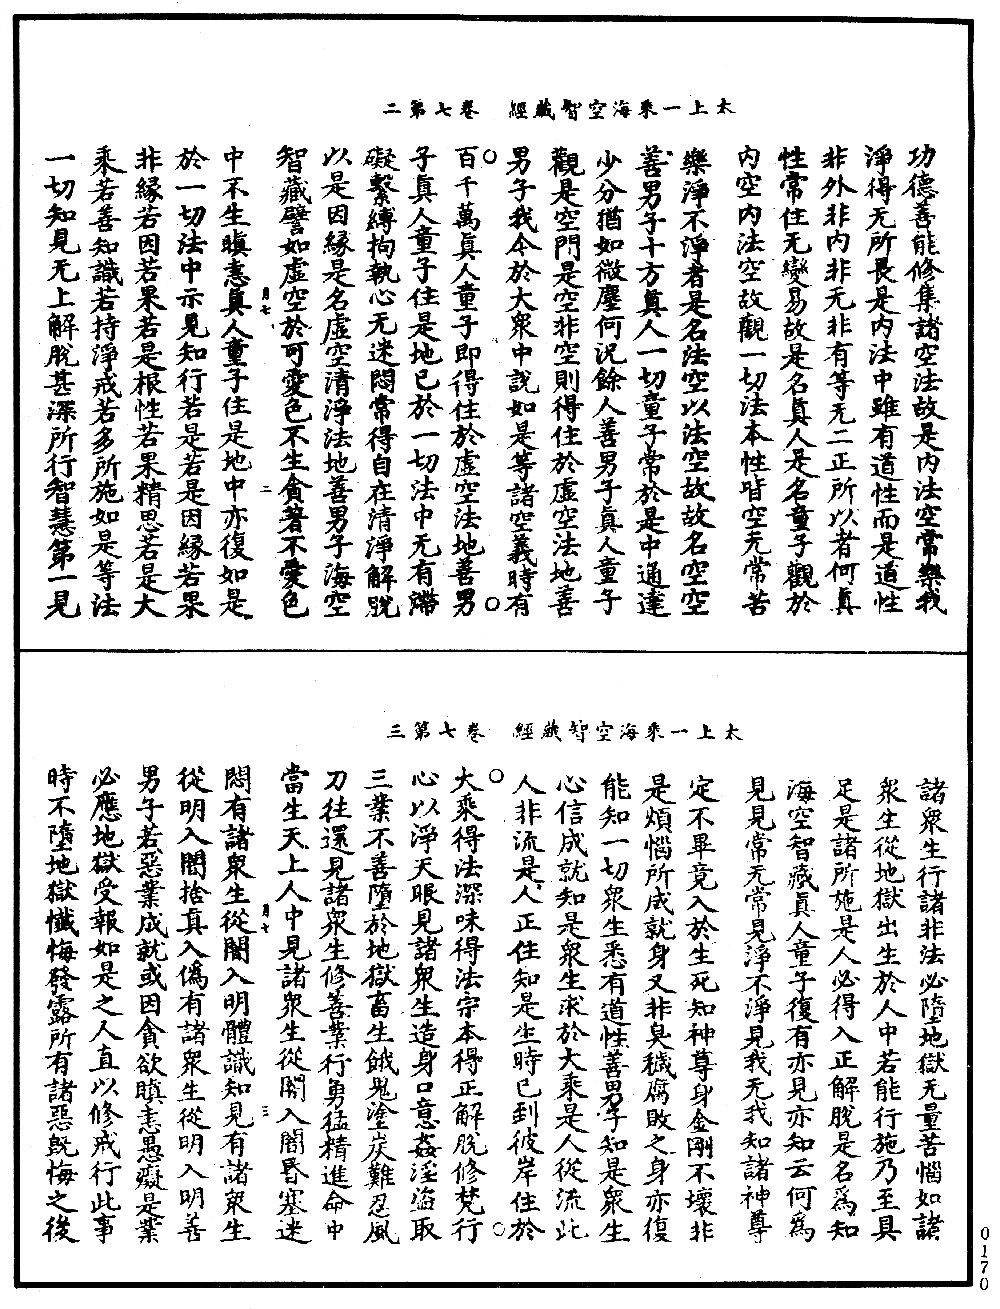 太上一乘海空智藏經　卷七第二
功德善能修集諸空法故是內法空常樂我
淨得无所畏是內法中雖有道性而是道性
非外非內非无非有等无二正所以者何真
性常住无變易故是名真人是名童子觀於
內空內法空故觀一切法本性皆空无常苦
樂淨不淨者是名法空以法空故故名空空
善男子十方真人一切童子常於是中通達
少分猶如微塵何況餘人善男子真人童子
觀是空門是空非空則得住於虛空法地善
男子我今於大眾中說如是等諸空義時有
百千萬真人童子即得住於虛空法地善男
子真人童子住是地已於一切法中无有滯
礙繫縛拘執心无迷悶常得自在清淨解脫
以是因緣是名虛空清淨法地善男子海空
智藏譬如虛空於可愛色不生貪著不愛色
月七　二
中不生瞋恚真人童子住是地中亦復如是
於一切法中示見知行若是若是因緣若果
非緣若因若果若是根性若果精思若是大
乘若善知識若持淨戒若多所施如是等法
一切知見无上解脫甚深所行智慧第一見
太上一乘海空智藏經　卷七第三
諸眾生行諸非法必墮地獄无量苦惱如諸
眾生從地獄出生於人中若能行施乃至具
足是諸所施是人必得入正解脫是名為知
海空智藏真人童子復有亦見亦知云何為
見見常无常見淨不淨見我无我知諸神尊
定不畢竟入於生死知神尊身金剛不壞非
是煩惱所成就身又非臭穢腐敗之身亦復
能知一切眾生悉有道性善男子知是眾生
心信成就知是眾生求於大乘是人從流此
人非流是人正住知是生時已到彼岸住於
大乘得法深味得法宗本得正解脫修梵行
心以淨天眼見諸眾生造身口意姦淫盜取
三業不善墮於地獄畜生餓鬼塗炭難忍風
刀往還見諸眾生修善業行勇猛精進命中
當生天上人中見諸眾生從闇入闇昏塞迷
月七　三
悶有諸眾生從闇入明體識知見有諸眾生
從明入闇捨真入偽有諸眾生從明入明善
男子若惡業成就或因貪欲瞋恚愚癡是業
必應地獄受報如是之人直以修戒行此事
時不墮地獄懺悔發露所有諸惡既悔之後
0170